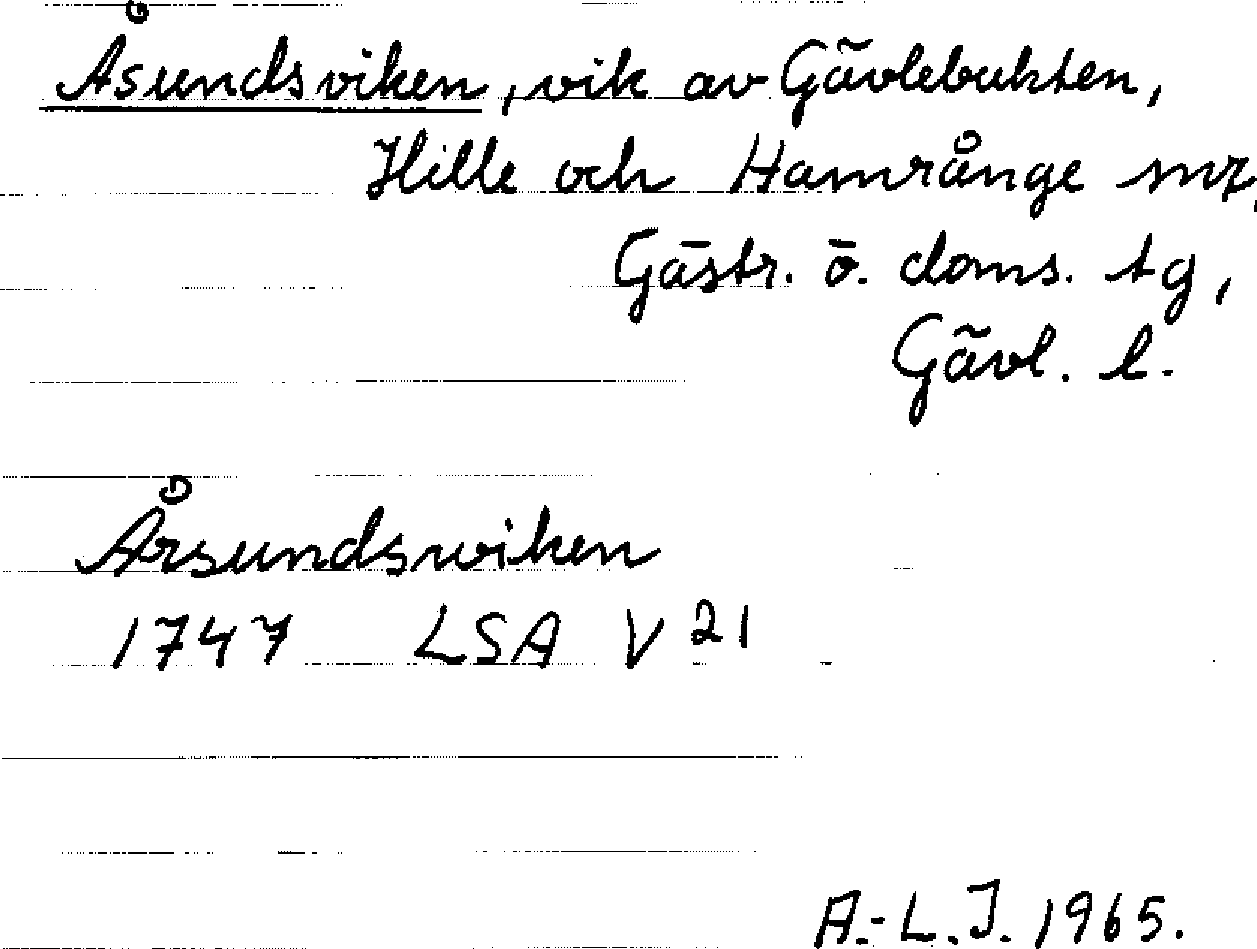 Åsundsviken, vik av Gävlebukten,
Hille och Hamrånge snr,
Gästr. ö. doms. tg,
Gävl. l.
Årsundswiken
1747 LSA V 21
A.-L.J. 1965.